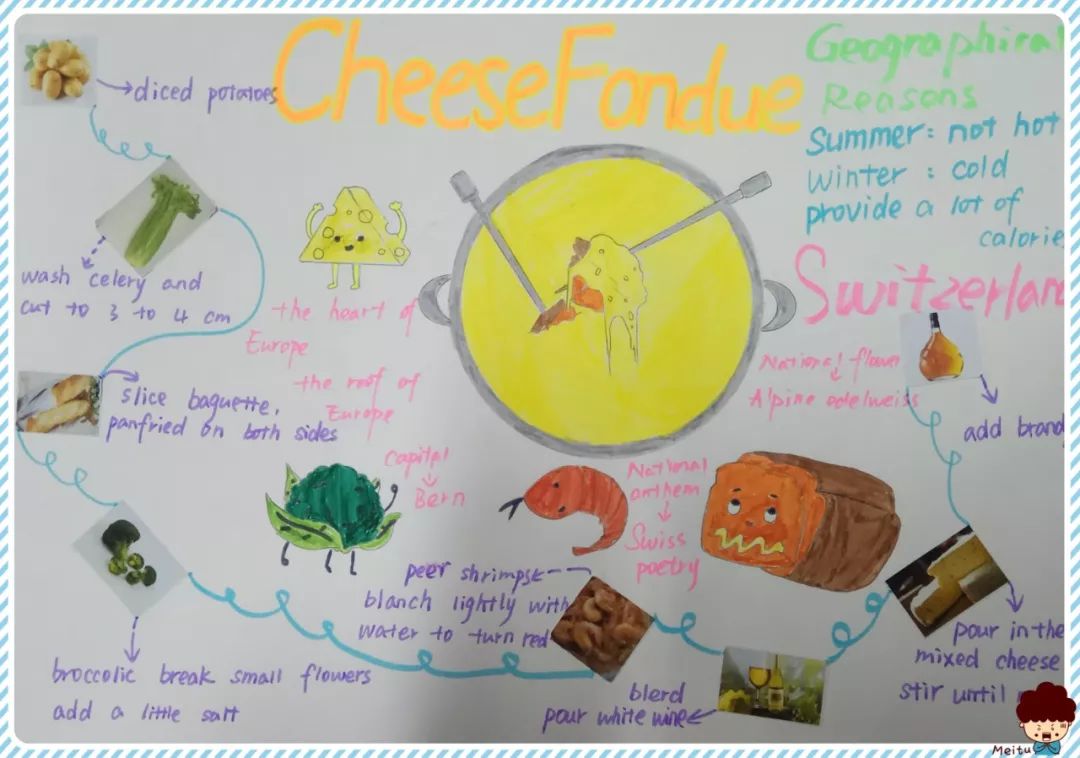 Cheese Fondue
Geographical
Reasons
Summer: not hot
Winter: cold
provide a lot of
calorie
Switzerlan
diced potatoes
wash celery and
cut to 3 to 4 cm
the heart of
Europe
the roof of
Europe
slice baguette,
panfried on both sides
National flower
Alpine edelweiss
add brand
Capital
Bern
National
anthem
Swiss
poetry
peer shrimpsk
blanch lightly with
water to turn red
broccolic break small flowers
add a little salt
blerd
pour white wine
pour in the
mixed cheese
stir until
Meitu